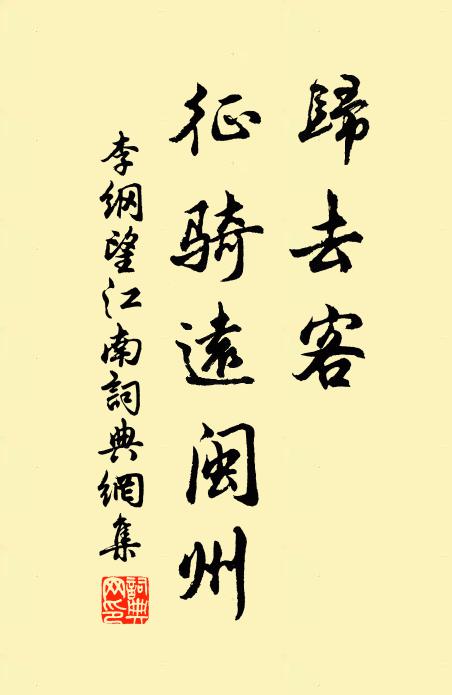 歸去客
征騎遠閩州
李綱望江南詞典網集
詞典網印